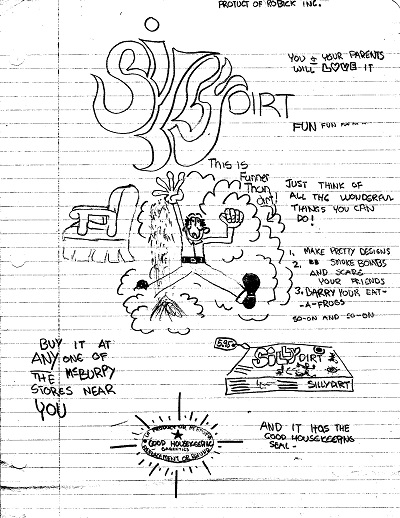 PROTUCT OF ROBICK INC.
YOU + YOUR PARENTS
WILL LOVE IT
SILLY DIRT
FUN FUN
This is
Funner
Than
dirt
JUST THINK OF
ALL THE WONDERFUL
THINGS YOU CAN
DO!
1. MAKE PRETTY DESIGNS
2. SMOKE BOMBS
AND SCARE
YOUR FRIENDS
3. BARRY YOUR EAT-
-A-FROGS
SO-ON AND SO-ON
BUY IT AT
ANY ONE OF
THE McBURPY
STORES NEAR
YOU
5.95
SILLY DIRT
SILLYDIRT
GOOD HOUSEKEEPING
REPLACMENT OR REFUND
AND IT HAS THE
GOOD HOUSEKEEPING
SEAL-